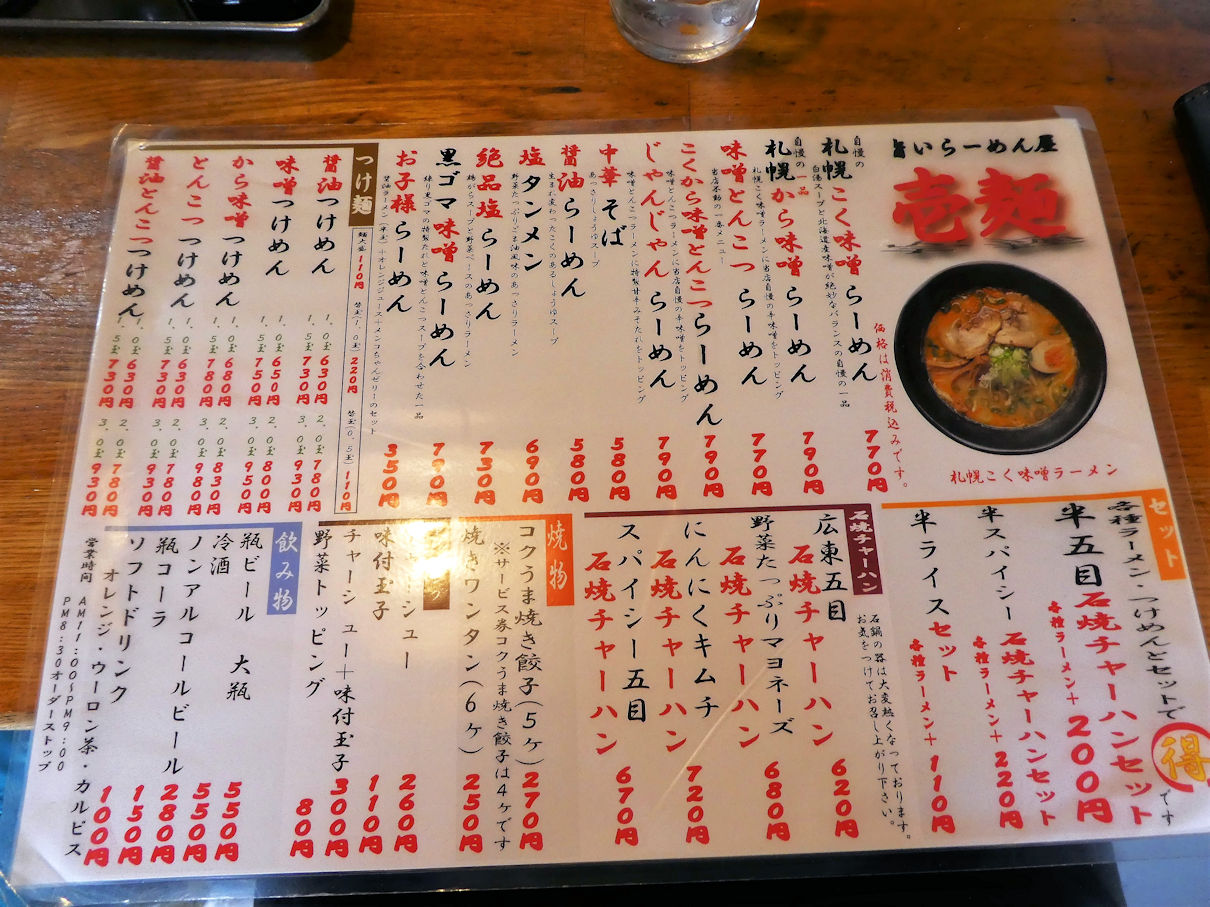 旨いらーめん屋
壱麺
札幌こく味噌ラーメン
価格は消費税込みです。
自慢の
札幌こく味噌らーめん 770円
白湯スープと北海道産味噌が絶妙なバランスの自慢の一品
自慢の一品
札幌から味噌らーめん 790円
札幌こく味噌ラーメンに当店自慢の辛味噌をトッピング
味噌とんこつらーめん 770円
当店不動の一番メニュー
こくから味噌とんこつらーめん 790円
味噌とんこつラーメンに当店自慢の辛味噌をトッピング
じゃんじゃんらーめん 790円
味噌とんこつラーメンに特製甘辛みそだれをトッピング
中華そば 580円
あっさりしょうゆスープ
醤油らーめん 580円
生まれ変わったこくのあるしょうゆスープ
塩タンメン 690円
野菜たっぷりごま油風味のあっさりラーメン
絶品塩らーめん 730円
鶏がらスープと野菜ベースのあっさりラーメン
黒ゴマ味噌らーめん 790円
練り黒ゴマの特製だれと味噌とんこつスープを合わせた一品
お子様らーめん 350円
醤油ラーメン(半玉)+オレンジジュース+メンコちゃんゼリーのセット
つけ麺
麺大盛110円 替玉(1.0玉)220円 替玉(0.5玉)110円
醤油つけめん 1.0玉630円 2.0玉780円
3.0玉930円
味噌つけめん 1.0玉650円 2.0玉800円
1.5玉750円 3.0玉950円
から味噌つけめん 1.0玉680円 2.0玉830円
1.5玉780円 3.0玉980円
とんこつつけめん 1.0玉630円 2.0玉780円
1.5玉730円 3.0玉930円
醤油とんこつつけめん 1.0玉630円 2.0玉780円
1.5玉730円 3.0玉930円
セット
各種ラーメン・つけめんとセットで得です
半五目石焼チャーハンセット
各種ラーメン+200円
半スパイシー石焼チャーハンセット
各種ラーメン+220円
半ライスセット
各種ラーメン+110円
石焼チャーハン
石鍋の器は大変熱くなっております。
お気をつけてお召し上がり下さい。
広東五目
石焼チャーハン 620円
野菜たっぷりマヨネーズ
石焼チャーハン 680円
にんにくキムチ
石焼チャーハン 720円
スパイシー五目
石焼チャーハン 670円
焼物
コクうま焼き餃子(5ヶ) 270円
※サービス券コクうま焼き餃子は4ヶです
焼きワンタン(6ヶ) 250円
チャーシュー 260円
味付玉子 110円
チャーシュー+味付玉子 300円
野菜トッピング 80円
飲み物
瓶ビール 大瓶 550円
冷酒 550円
ノンアルコールビール 280円
瓶コーラ 150円
ソフトドリンク 100円
オレンジ・ウーロン茶・カルピス
営業時間 AM11:00〜PM9:00
PM8:30オーダーストップ